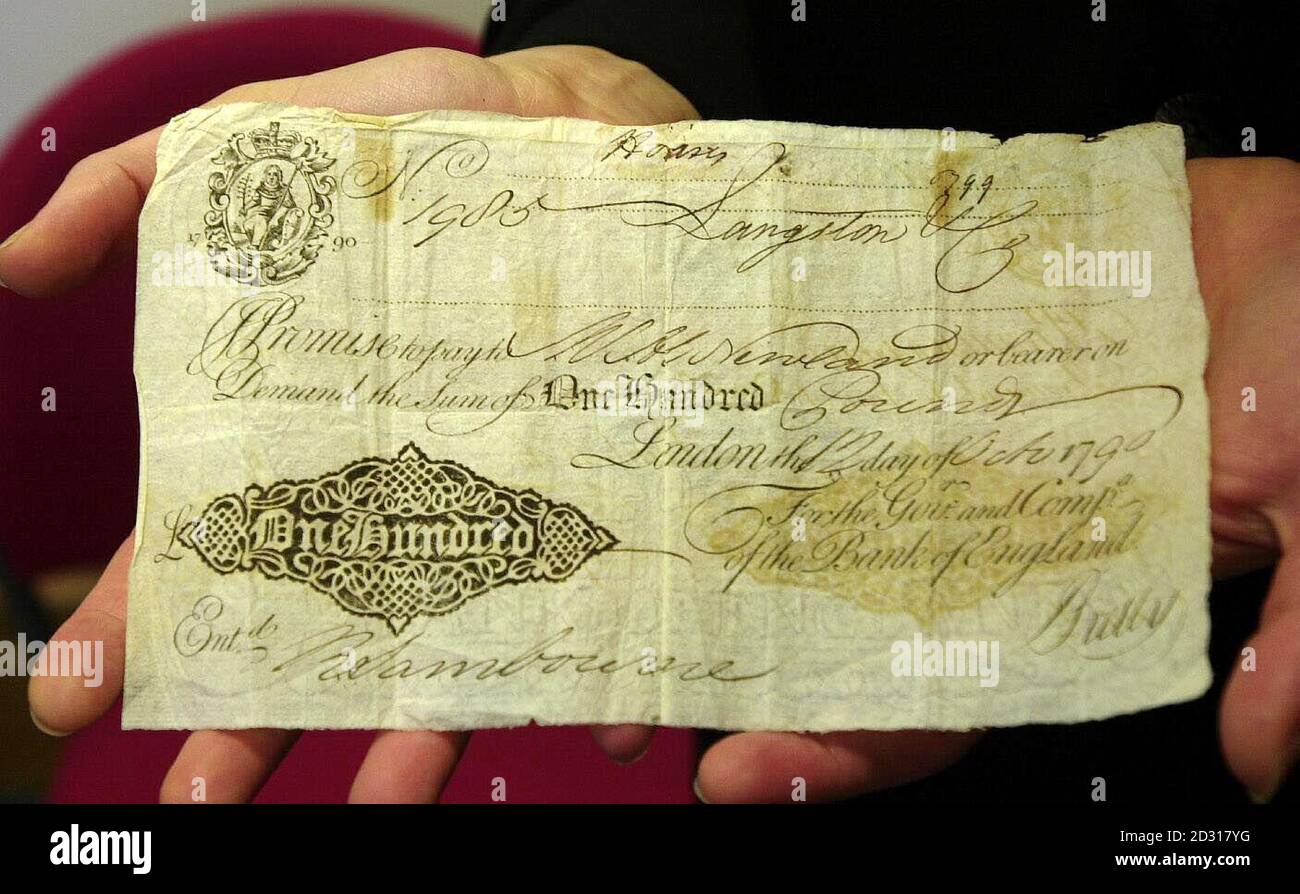 No Hoares
1985 799
Langston & Co
17 90
I Promise to pay to Mr Abm Newland or bearer on
Demand the Sum of One Hundred Pounds
London the 12 day of Octr 1790
£ One Hundred
For the Govr. and Compa.
of the Bank of England
Entd.
alamy
Image ID: 2D317YG
www.alamy.com